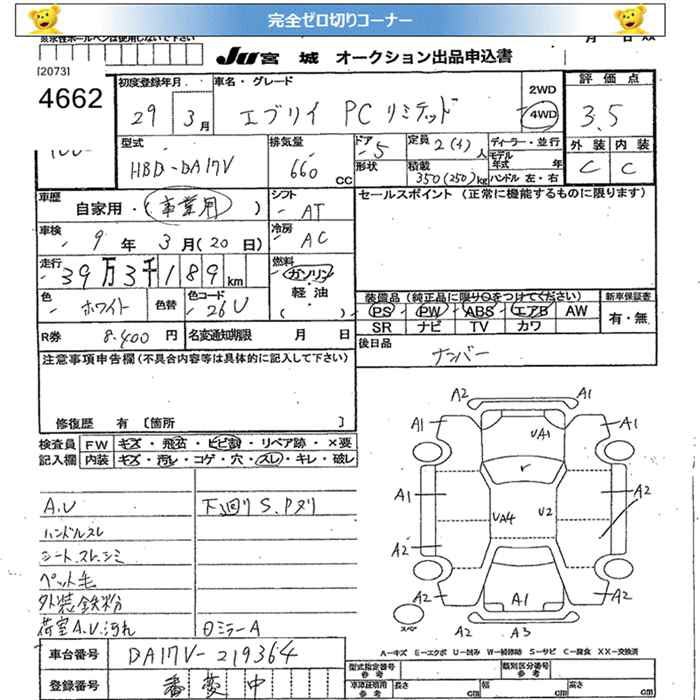 完全ゼロ切りコーナー
[2073]
JU 宮城 オークション出品申込書
4662
初度登録年月 車名・グレード 2WD 4WD 評価点
29 3月 エブリイ PCリミテッド 3.5
外装 内装
C C
型式 排気量 ドア 定員 ディーラー・並行
HBD-DA17V 660 CC 5 2(4)人 モデル年式 年
形状 積載 350(250)kg ハンドル 左・右
車歴 シフト セールスポイント (正常に機能するものに限ります)
自家用・(事業用) AT
車検 冷房
9年 3月(20日) AC
走行 燃料
39万3千189km ガソリン・軽油
( )
色 色替 色コード
ホワイト 26U
装備品 (純正品に限り○をつけてください) 新車保証書
PS PW ABS エアB AW 有・無
SR ナビ TV カワ
R券 8.400円 名変通知期限 月 日
後日品
ナンバー
注意事項申告欄(不具合内容等は具体的に記入して下さい)
修復歴 有 [箇所 ]
検査員 FW キズ・飛石・ヒビ割・リペア跡・×要
記入欄 内装 キズ・汚レ・コゲ・穴・スレ・キレ・破レ
A.U 下廻りS.Pヌリ
ハンドルスレ
シートスレ.シミ
ペット毛
外装鉄粉
荷室A.U.汚れ ロミラーA
車台番号 DA17V-219364
登録番号 番変中
A2 A1
A1 A1
UA1
A1 UA4 U2 A2
A2 A2
A1
A2 A3
スペアー
A−キズ E−エクボ U−凹み W−補修跡 S−サビ C−腐食 XX−交換済
型式指定番号 参考 類別区分番号 参考
車庫証明用 参考 長さ cm 幅 cm 高さ cm